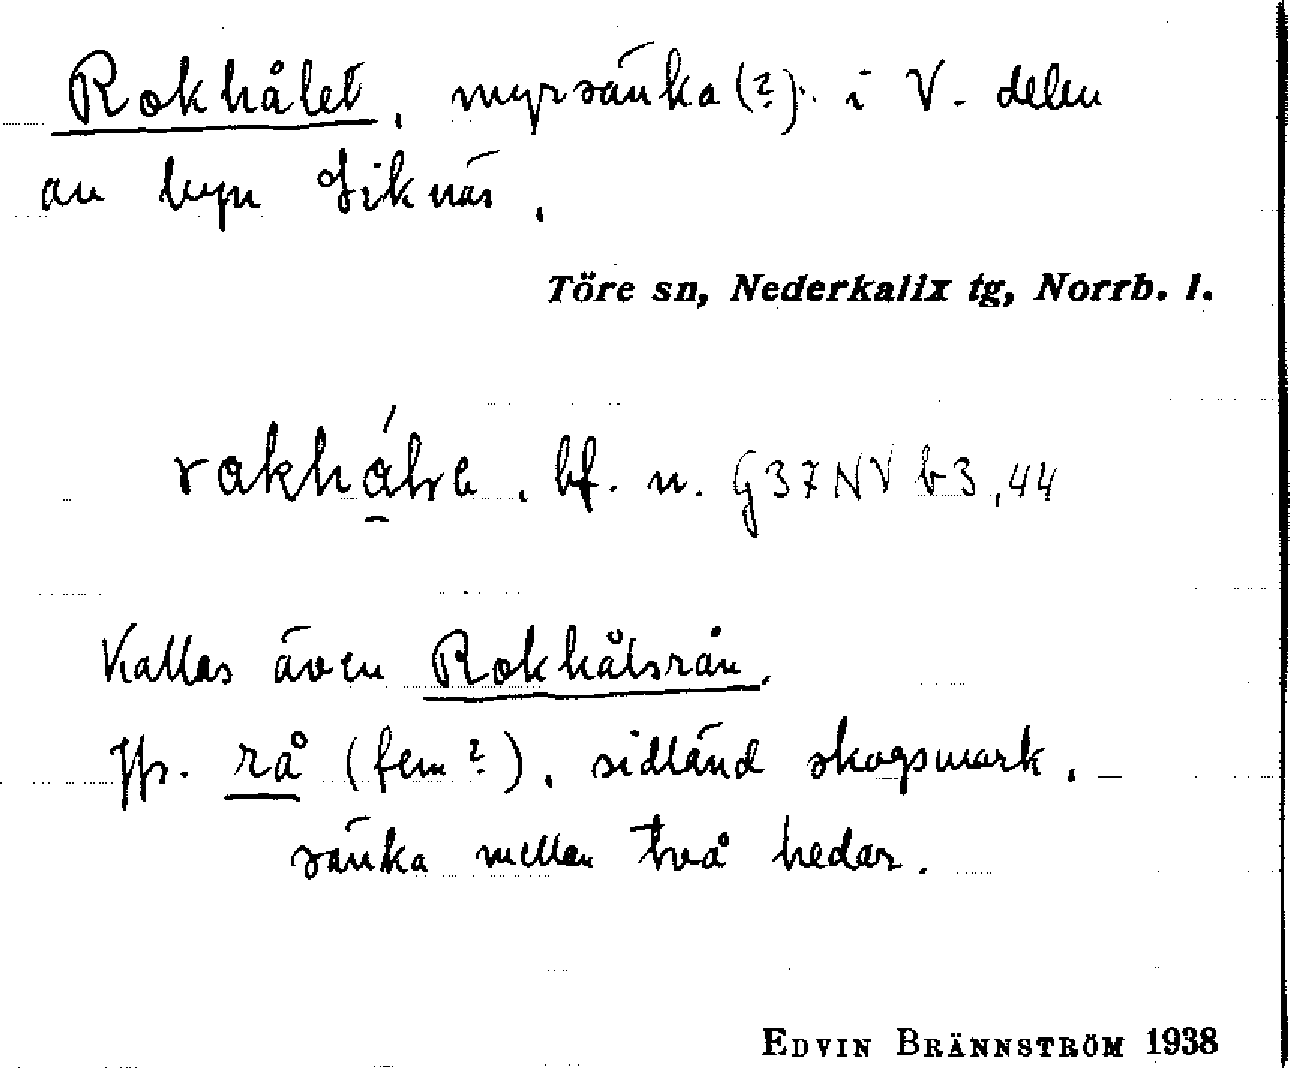 Rokhålet, myrsänka (?). i V. delen
av byn Siknäs.
Töre sn, Nederkalix tg, Norrb. l.
bf. n. G37NV b3,44
Kallas även Rokhålsrån.
Jfr. rå (fem?), sidländ skogsmark, –
sänka mellan två hedar.
EDVIN BRÄNNSTRÖM 1938